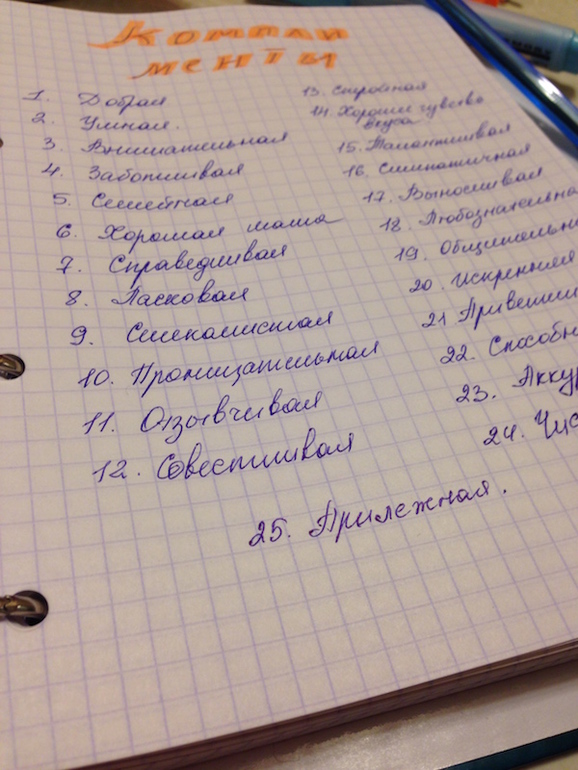 Компли
менты
1. Добрая
2. Умная.
3. Внимательная
4. Заботливая
5. Семейная
6. Хорошая мама
7. Справедливая
8. Ласковая
9. Смекалистая
10. Проницательная
11. Отзывчивая
12. Совестливая
13. Стройная
14. Хорошее чувство
вкуса
15. Талантливая
16. Симпатичная
17. Выносливая
18. Любознательна
19. Общительн
20. Искренняя
21 Приветли
22. Способн
23. Акку
24. Чис
25. Прилежная.